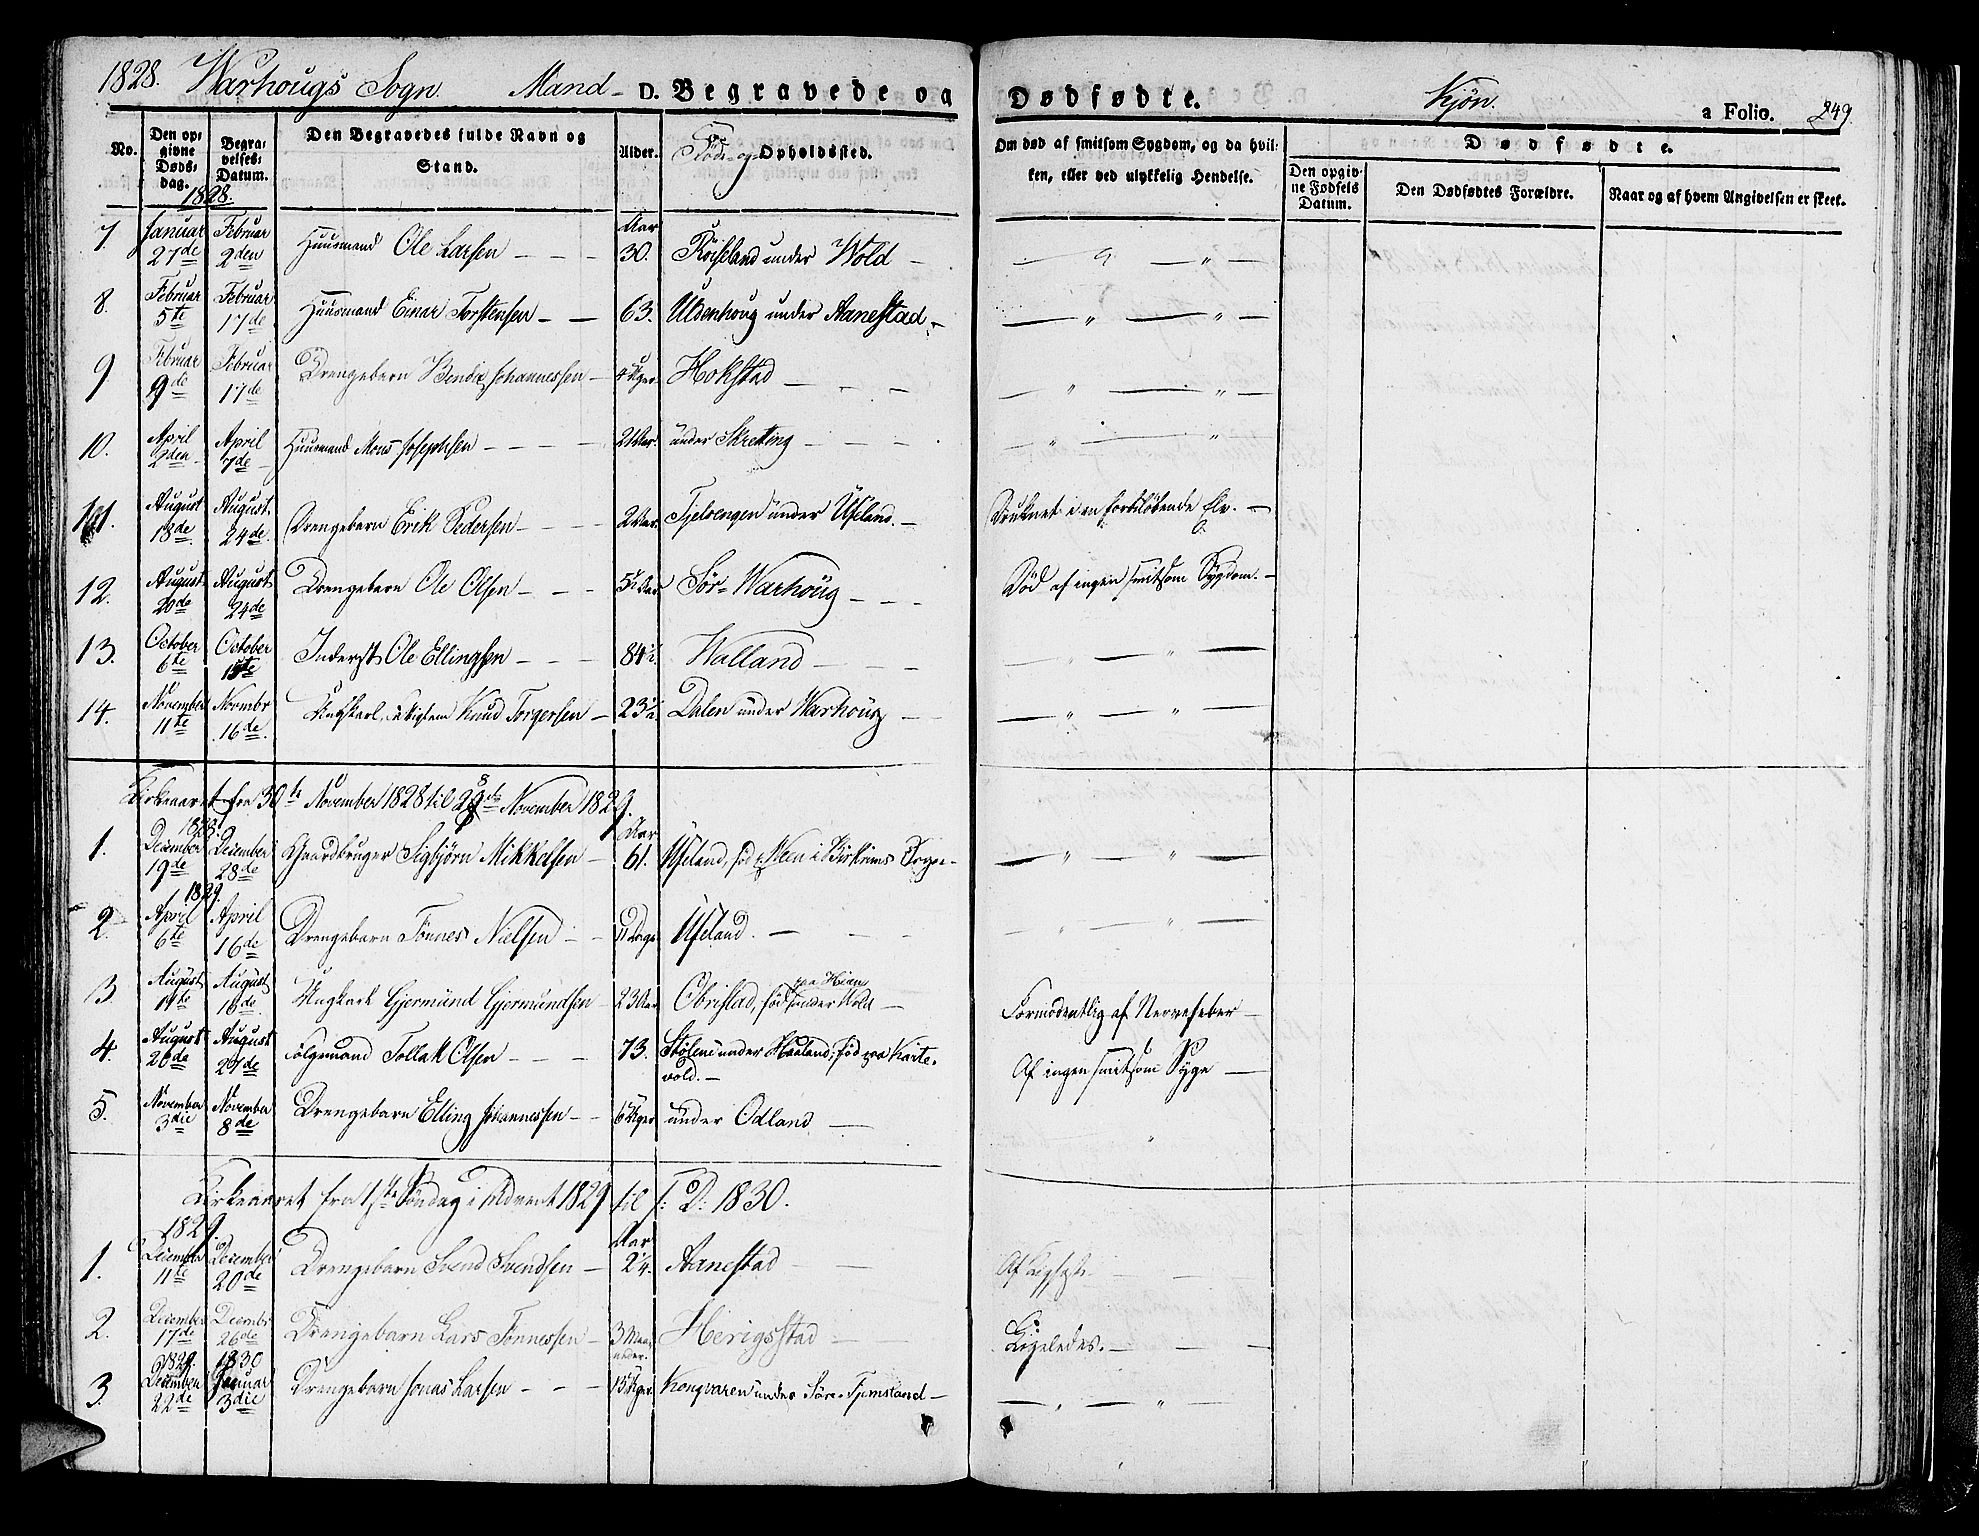 1828. Warhougs Sogn. Mand- D. Begravede og Dødfødte. Kjön. a Folio. 249.
No. Den opgivne Døds-dag. Begravelses-Datum. Den Begravedes fulde Navn og Stand. Alder. Föde- og Opholdssted. Om død af smitsom Sygdom, og da hvilken, eller ved ulykkelig Hendelse. Dødfødte.
Den opgivne Fødsels Datum. Den Dødfødtes Forældre. Naar og af hvem Angivelsen er skeet.
1828.
7. Januar 27de Februar 2den Huusmand Ole Larsen – – – Aar 30. Röiseland under Wold – — " — " —
8. Februar 5te Februar 17de Huusmand Einar Torstensen – — 63. Uldenhoug under Aanestad – — " — " —
9 Februar 9de Februar 17de Drengebarn Bendix Johannessen – 4 Uger. Hokstad – – – — " — " —
10. April 2den April 7de Huusmand Mons Josephsen – – – – under Skretting – – – — " — "
11. August 18de August 24de Drengebarn Erik Pedersen – – – 2 Aar. Tjelsengen under Ueland. – Druknet i en forbiløbende Elv. –
12. August 20de August 24de Drengebarn Ole Olsen – – – 5½ Aar Sör-Warhoug – – – Död af ingen smitsom Sygdom. –
13. October 6te October Inderst Ole Ellingsen – – – 84½. Walland – – – — " — " —
14. November 11te Novembr 16de. Ungkarl, Knud Torgersen – 23½ Dalen under Warhoug – – — " — " —
Kirkeaaret fra 30te November 1828 til 28de November 1829.
1828.
1. December 19de December 28de Gaardbruger Sigbjörn Mikkelsen – Aar 61. Ueland, föd i Birkrims Sogn – — " — " —
1829.
2. April 6te April 16de Drengebarn Tönnes Nielsen – – 11 Dage Ueland. – – – — " — " —
3 August August 16de. Ungkarl Gjermund Gjermundsen – 23 Aar Obrestad, föd paa Höien under Wold – Formodentlig af Nervefeber –
4. August 26de August Folgemand Tollak Olsen – – – 73. Stölen under Haaland, föd paa Kartevold. – Af ingen smitsom Syge –
5. November 3die November 8de Drengebarn Elling Johannessen – – 6 Uger under Odland — "
Kirkeaaret fra 1ste Söndag i Advent 1829 til s: D: 1830.
1829.
1. December 11te December 20de Drengebarn Svend Svendsen – Aar 2¼. Aanestad – –
2. December 17de Decembr 26de Drengebarn Lars Tönnessen – 3 Maaneder. Herigstad – Ligeledes. – – –
3. 1829. December 22de 1830 Januar 3die Drengebarn Jonas Larsen – – – 15 Uger. Kongvaren under Söre-Tjemsland – — " — " —